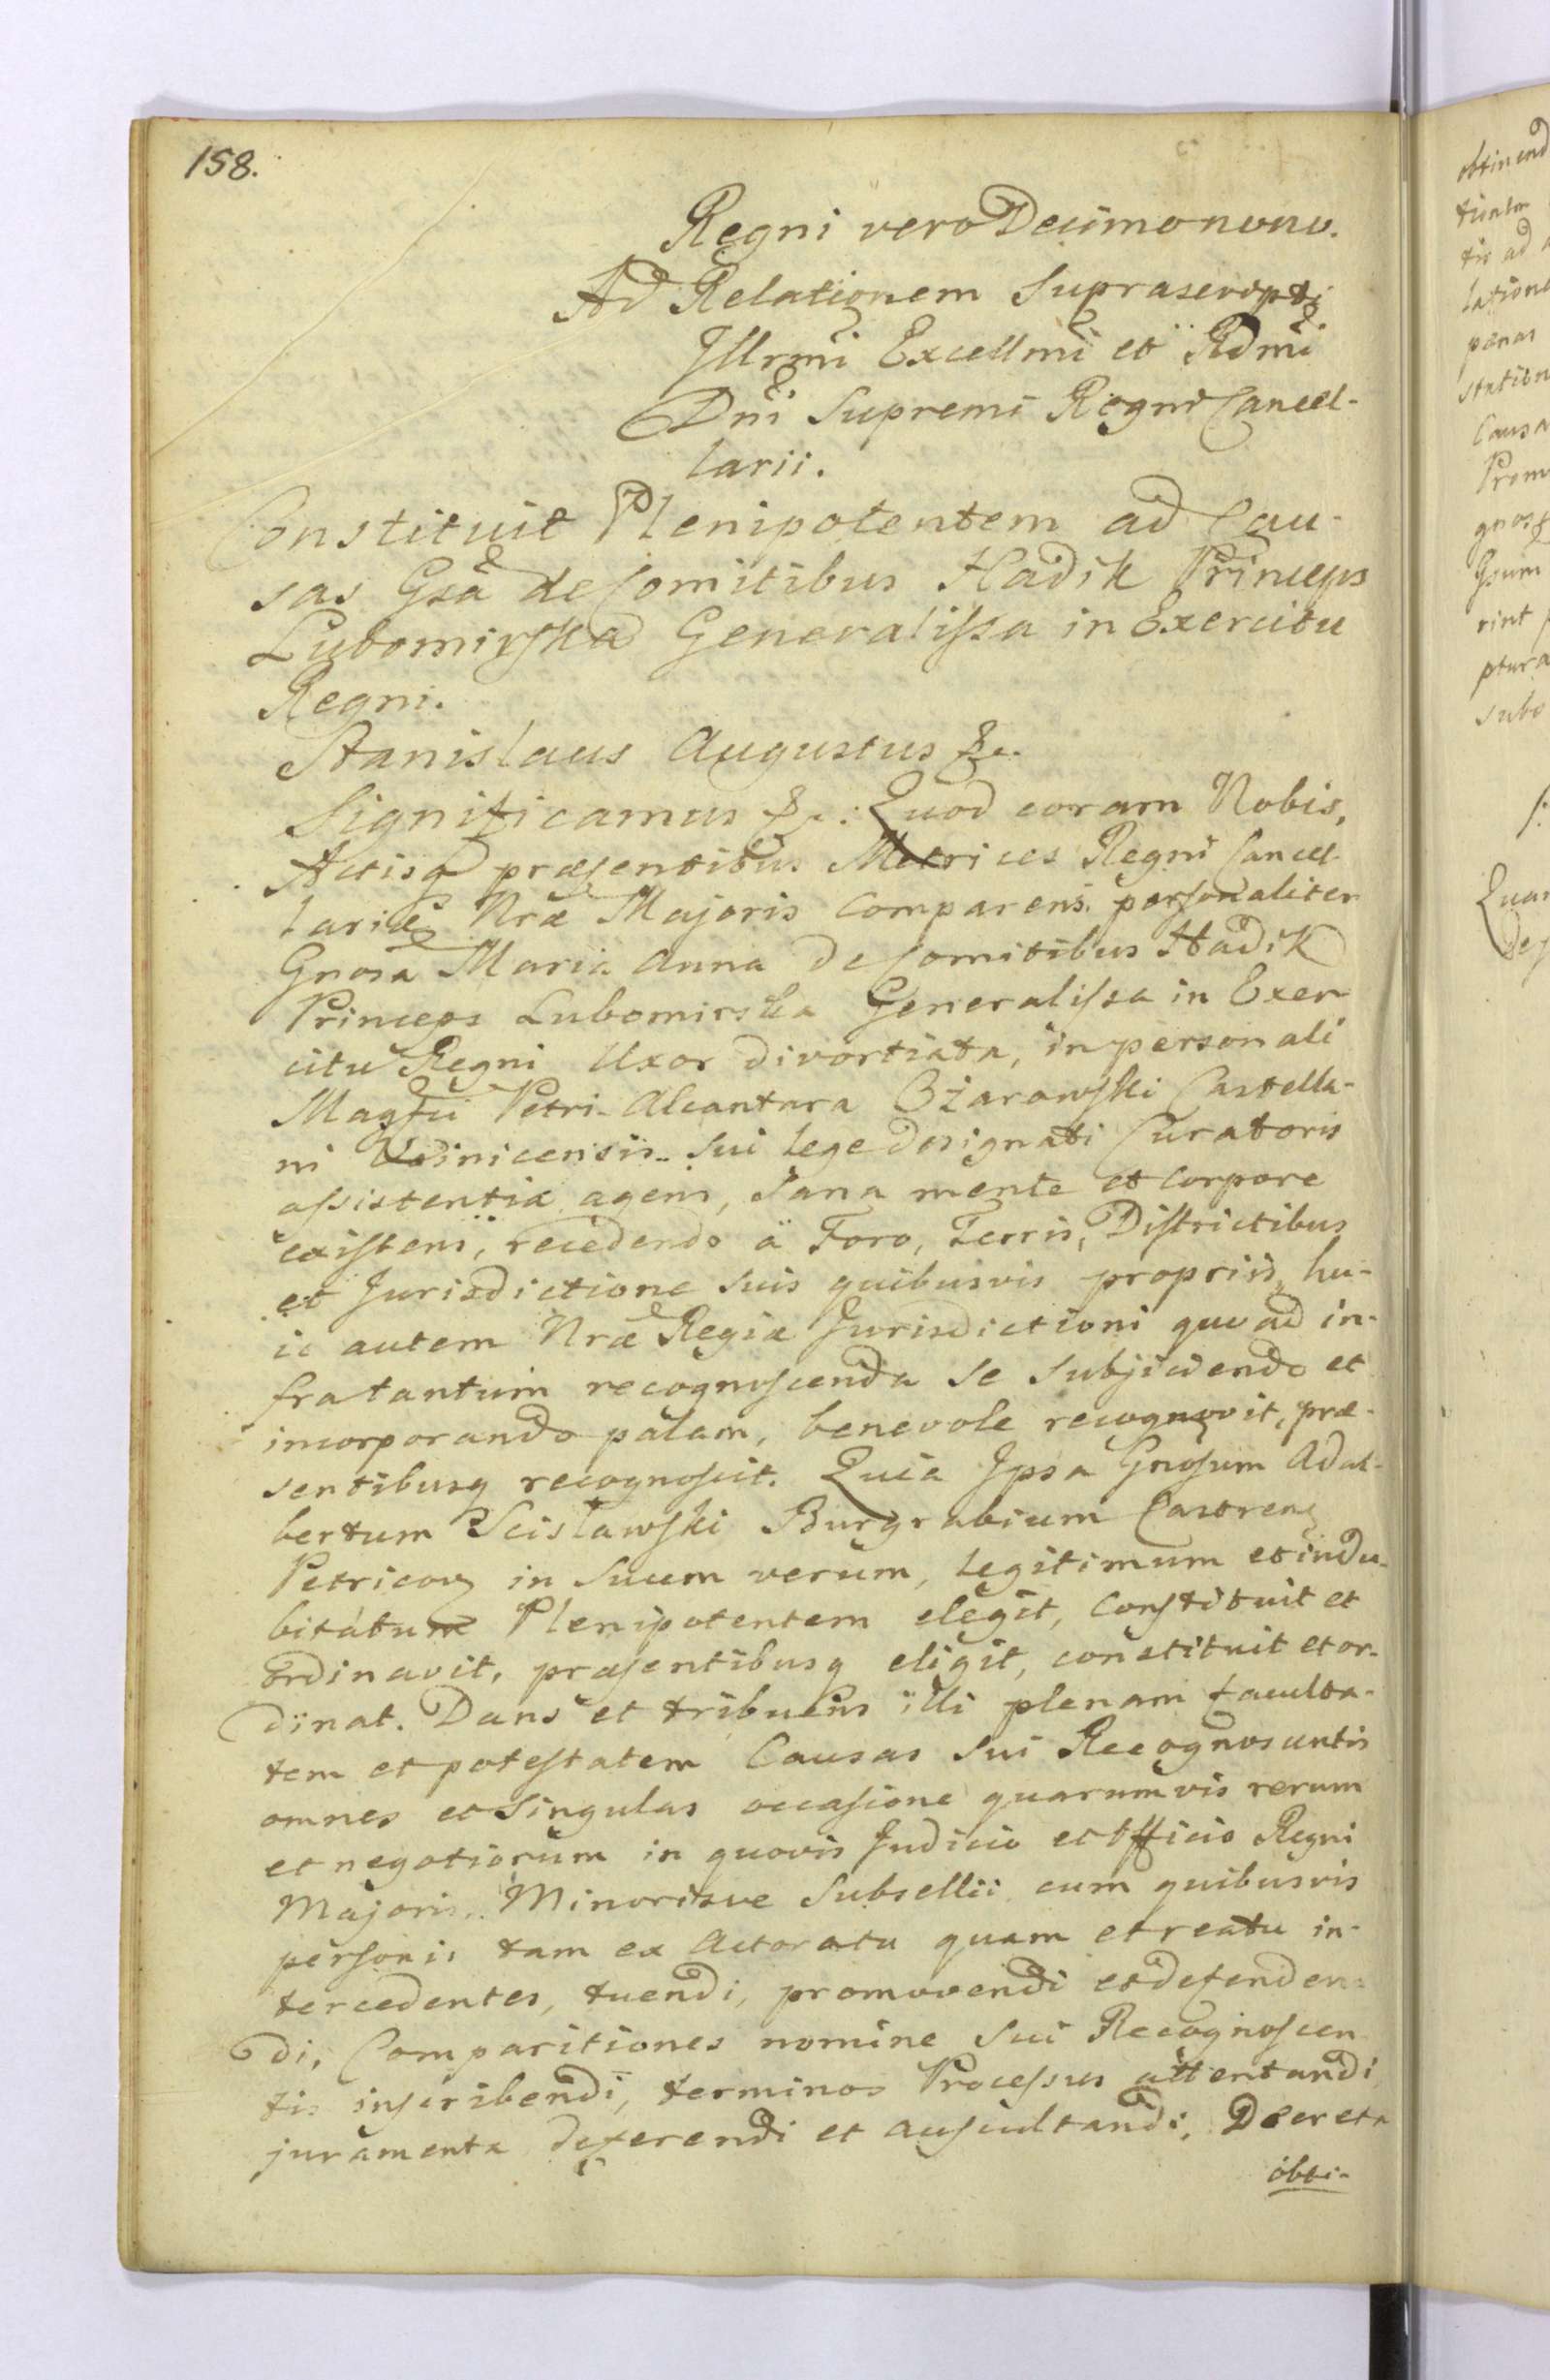 158.
Regni vero Decimonono.
Ad Relationem Suprascripti
Illrmi Excellmi et Rdmi
Dni Supremi Regni Cancel-
larii.
Constituit Plenipotentem ad Cau-
sas Gsa de Comitibus Hadik Princeps
Lubomirska Generalissa in Exercitu
Regni.
Stanislaus Augustus &c.
Significamus &c. Quod coram Nobis,
Actisq præsentibus Metrices Regni Cancel-
lariæ Nræ Majoris Comparens personaliter
Gnosa Maria Anna de Comitibus Hadik
Princeps Lubomirska Generalissa in Exer
citu Regni Uxor divortiata, in personali
Magfci Petri Alcantara Ożarowski Castella-
ni Voinicensis sui lege designati Curatoris
assistentia agens, sana mente et corpore
existens, recedendo a Foro, Terris, Districtibus
et Jurisdictione suis quibusvis propriis, hu-
ic autem Nræ Regiæ Jurisdictioni quo ad in-
fra tantum recognoscenda se subjiciendo et
incorporando palam, benevole recognovit, præ-
sentibusq recognoscit. Quia Ipsa Gnosum Adal-
bertum Scisławski Burgrabium Castren
Petricov in Suum verum, legitimum et indu-
bitatum Plenipotentem elegit, Constituit et
ordinavit, præsentibusq eligit, constituit et or-
dinat. Dans et tribuens illi plenam faculta-
tem et potestatem Causas sui Recognoscentis
omnes et Singulas occasione quarumvis rerum
et negotiorum in quovis Judicio et Officio Regni
Majoris Minorisve Subsellii cum quibusvis
personis tam ex Actoratu quam et reatu in-
tercedentes, tuendi, promovendi et defenden-
di, Comparitiones nomine Sui Recognoscen
tis inscribendi, terminos Processus attentandi
juramenta deferendi et auscultandi, Decreta
obti-
obtinend
tis ad
latione
pænas
Causa
Prom
rint
ptura
subo
Quar